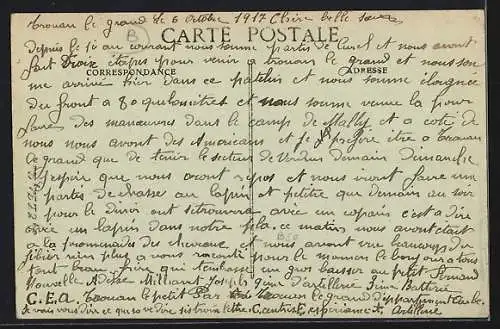 trouan le grand le 6 octobre 1917 Chère belle soeur
CARTE POSTALE
CORRESPONDANCE
ADRESSE
depuis le 30 au courant nous somme partis de Curel et nous avont
fait trois étapes pour venir a trouan le grand et nous som
me arrivé hier dans ce patelin et nous somme éloignée
du front a 80 quelometres et nous somme venue la pour
faire des manoeuvres dans le camp de Mailly et a coté de
nous nous avont des Americains et je préfère être a trouan
le grand que de tenir le secteur de Verdun demain dimanche
j'espoir que nous auront repos et nous iront faire une
parties de chasse au lapin et petitre que demain au soir
pour le diner ont setrouvera avec un copain c'est a dire
avec un lapin dans notre pla. ce matin nous avont était
a la promenades des chevaux et nous avont vue beaucoup du
gibier rien plus a vous raconté pour le moment le bonjour a ton
beau frère qui t'embrasse un gros baisser au petit Fernand
Nouvelle Adresse Milliant Joseph d'artillerie Batterie
C.E.A. trouan le petit Par trouan le grand département Aube
je vais vous dire ce que sa ve dire C. E, experiance A, Artillerie